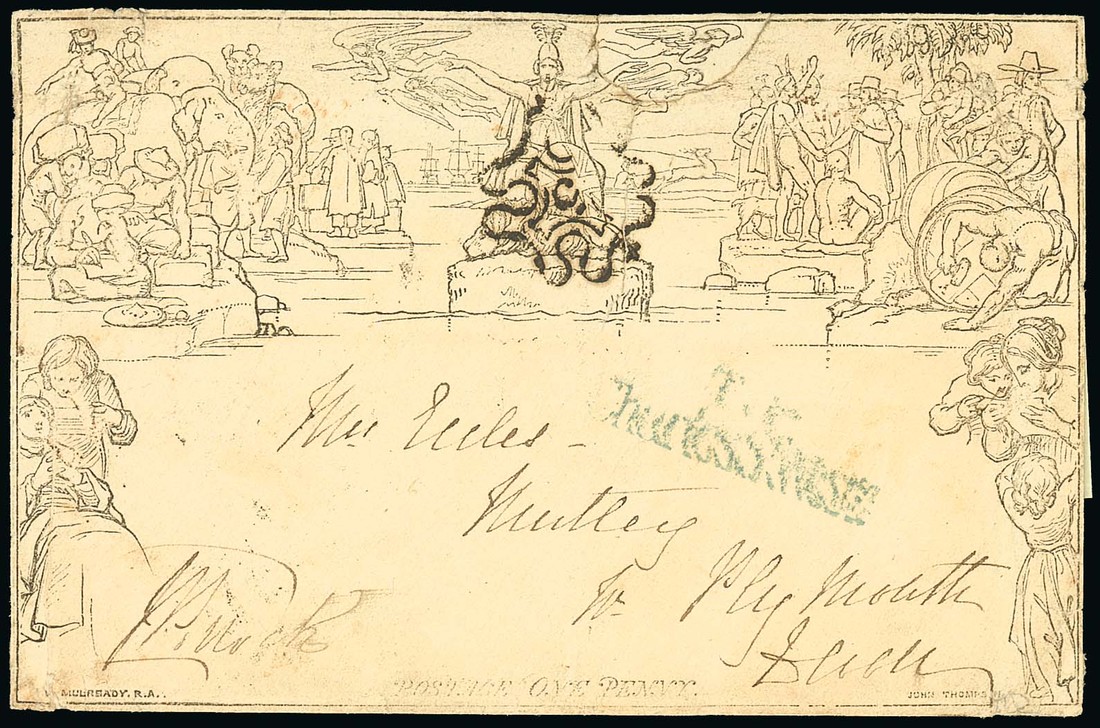 Mrs Eccles –
Mutley
Nr Plymouth
Devon
W MULREADY. R.A.
POSTAGE ONE PENNY.
JOHN THOMPS